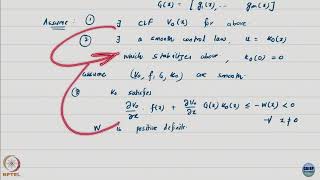 G(x) = [ g₁(x), ... gₘ(x) ]
Assume: ① ∃ CLF V₀(x) for above.
② ∃ a smooth control law, u = k₀(x)
which stabilizes above, k₀(0) = 0
assume (V₀, f, G, k₀) are smooth.
V₀ satisfies
∂V₀/∂x · f(x) + ∂V₀/∂x G(x) k₀(x) ≤ -W(x) < 0
∀ x ≠ 0
W is positive definite
NPTEL